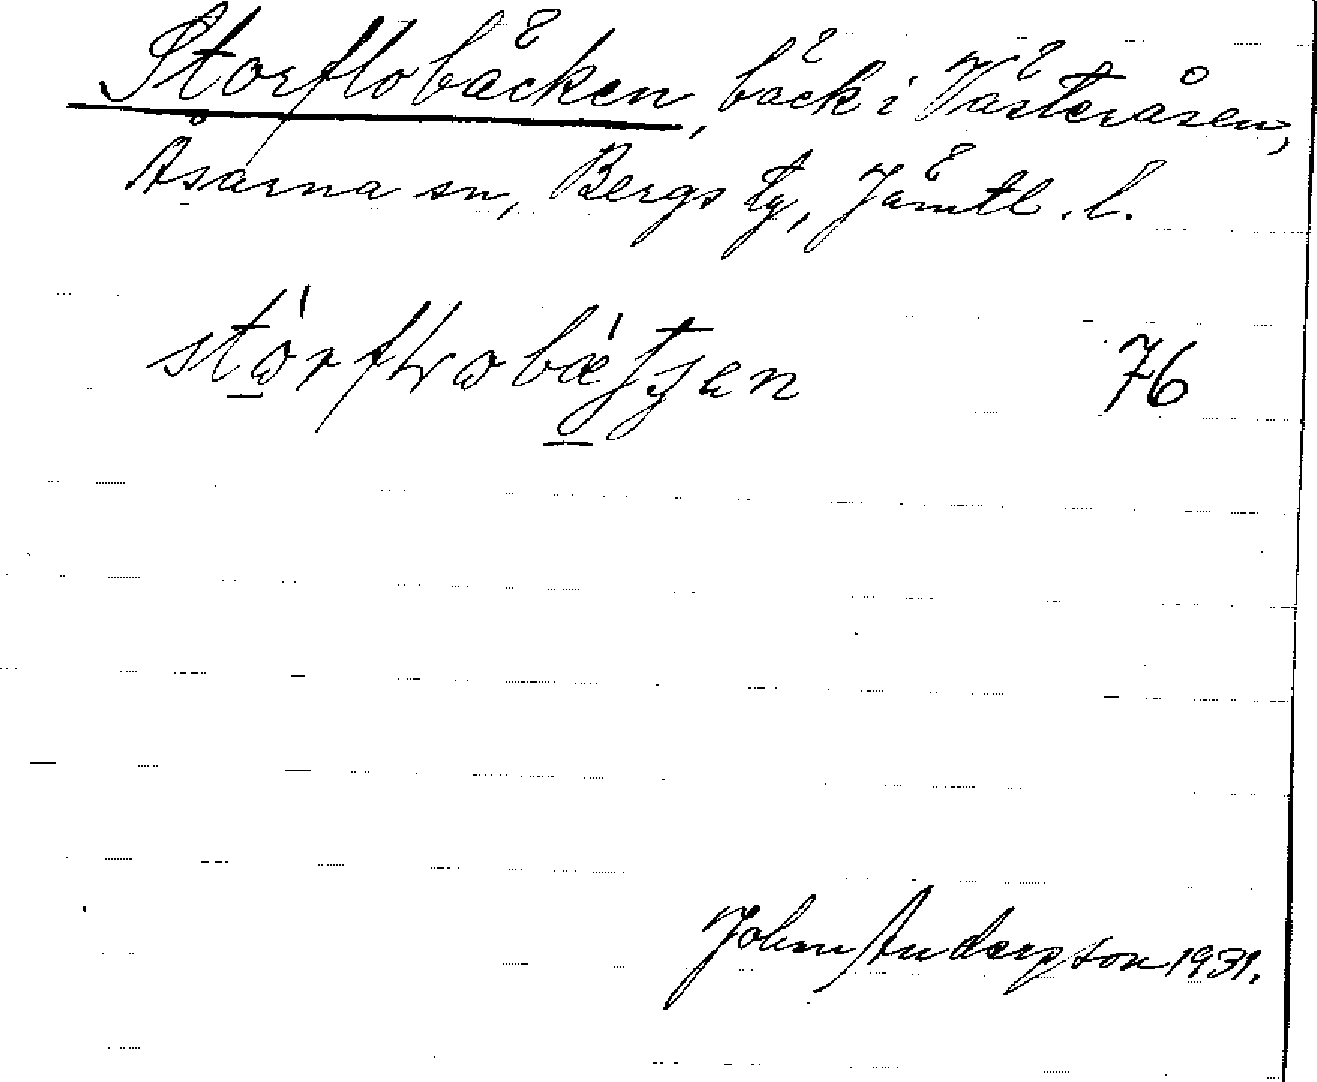 Storflobäcken, bäck i Västeråsen,
Åsarna sn, Bergs tg, Jämtl. l.
76
John Andersson 1931.